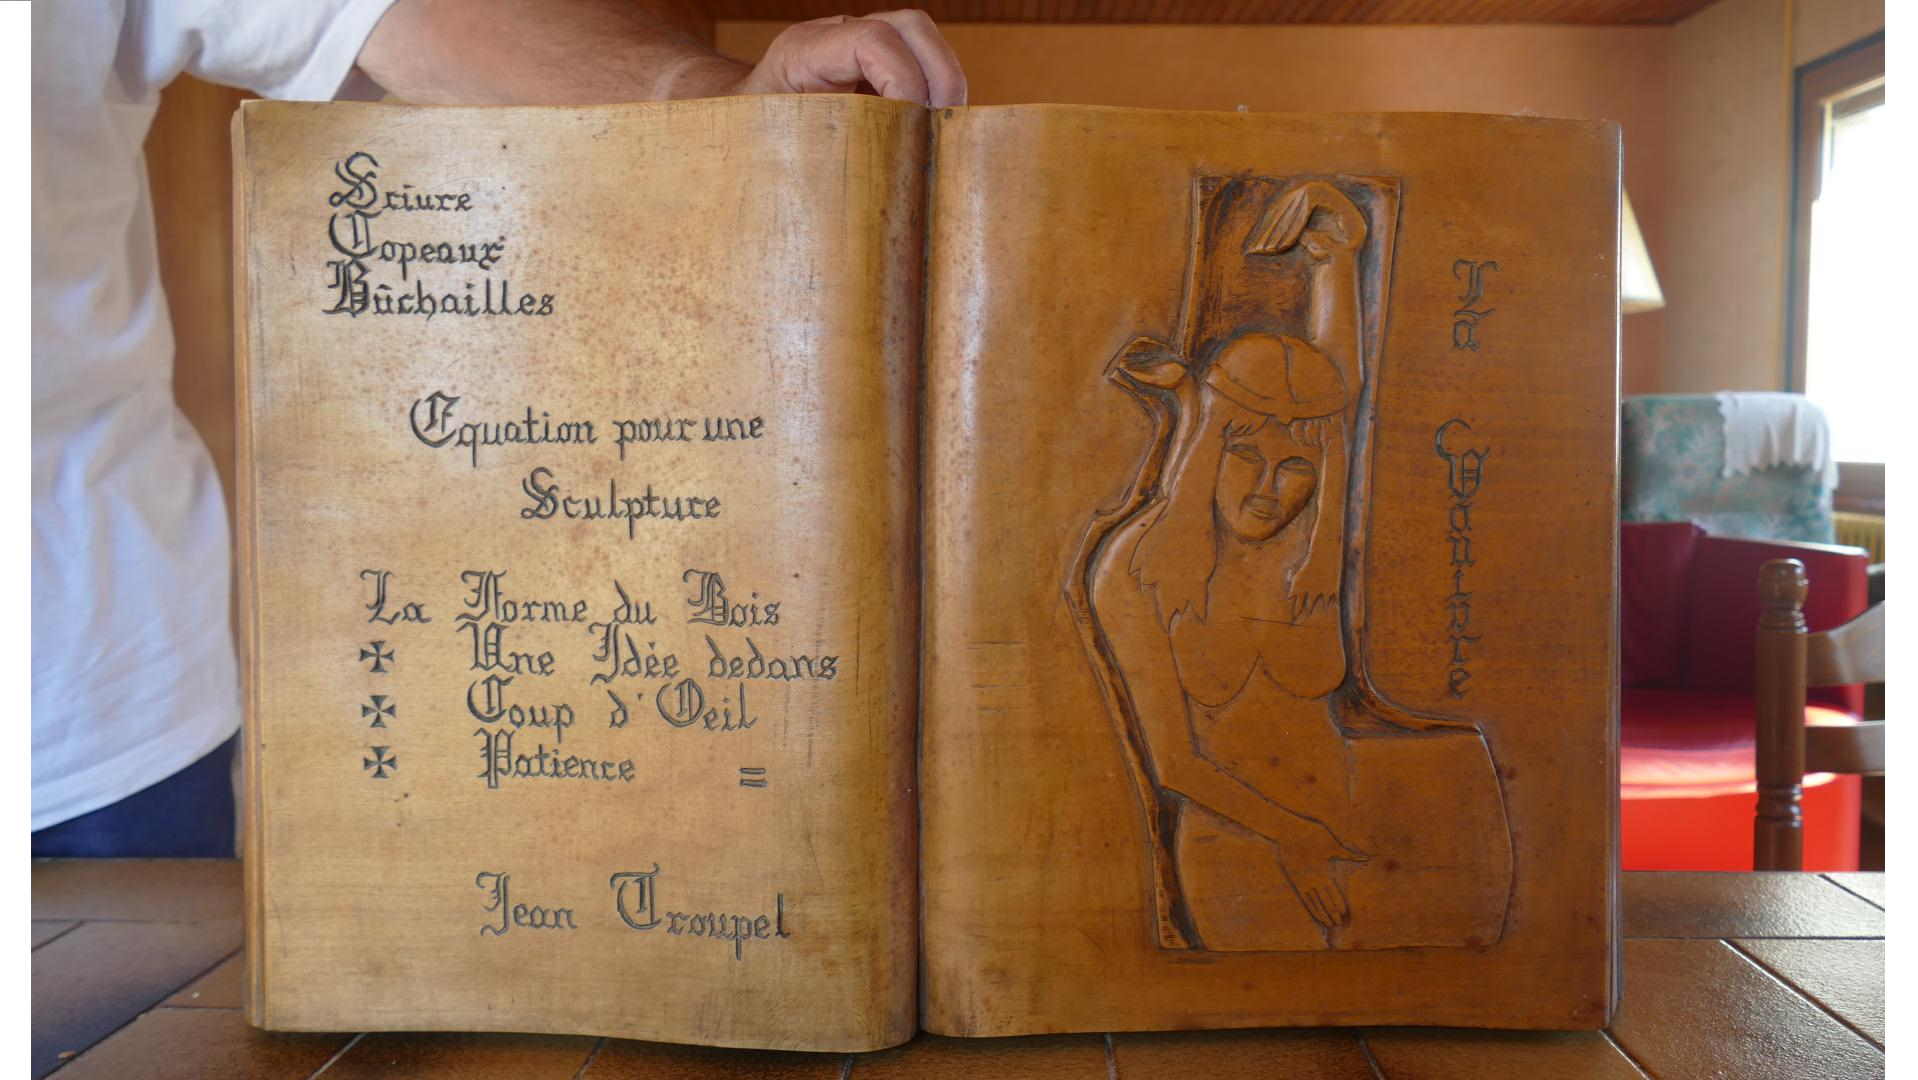 Sciure
Copeaux
Bûchailles
Equation pour une
Sculpture
La Forme du Bois
✠ Une Idée dedans
✠ Coup d'Oeil
✠ Patience =
Jean Troupel
La Vouivre